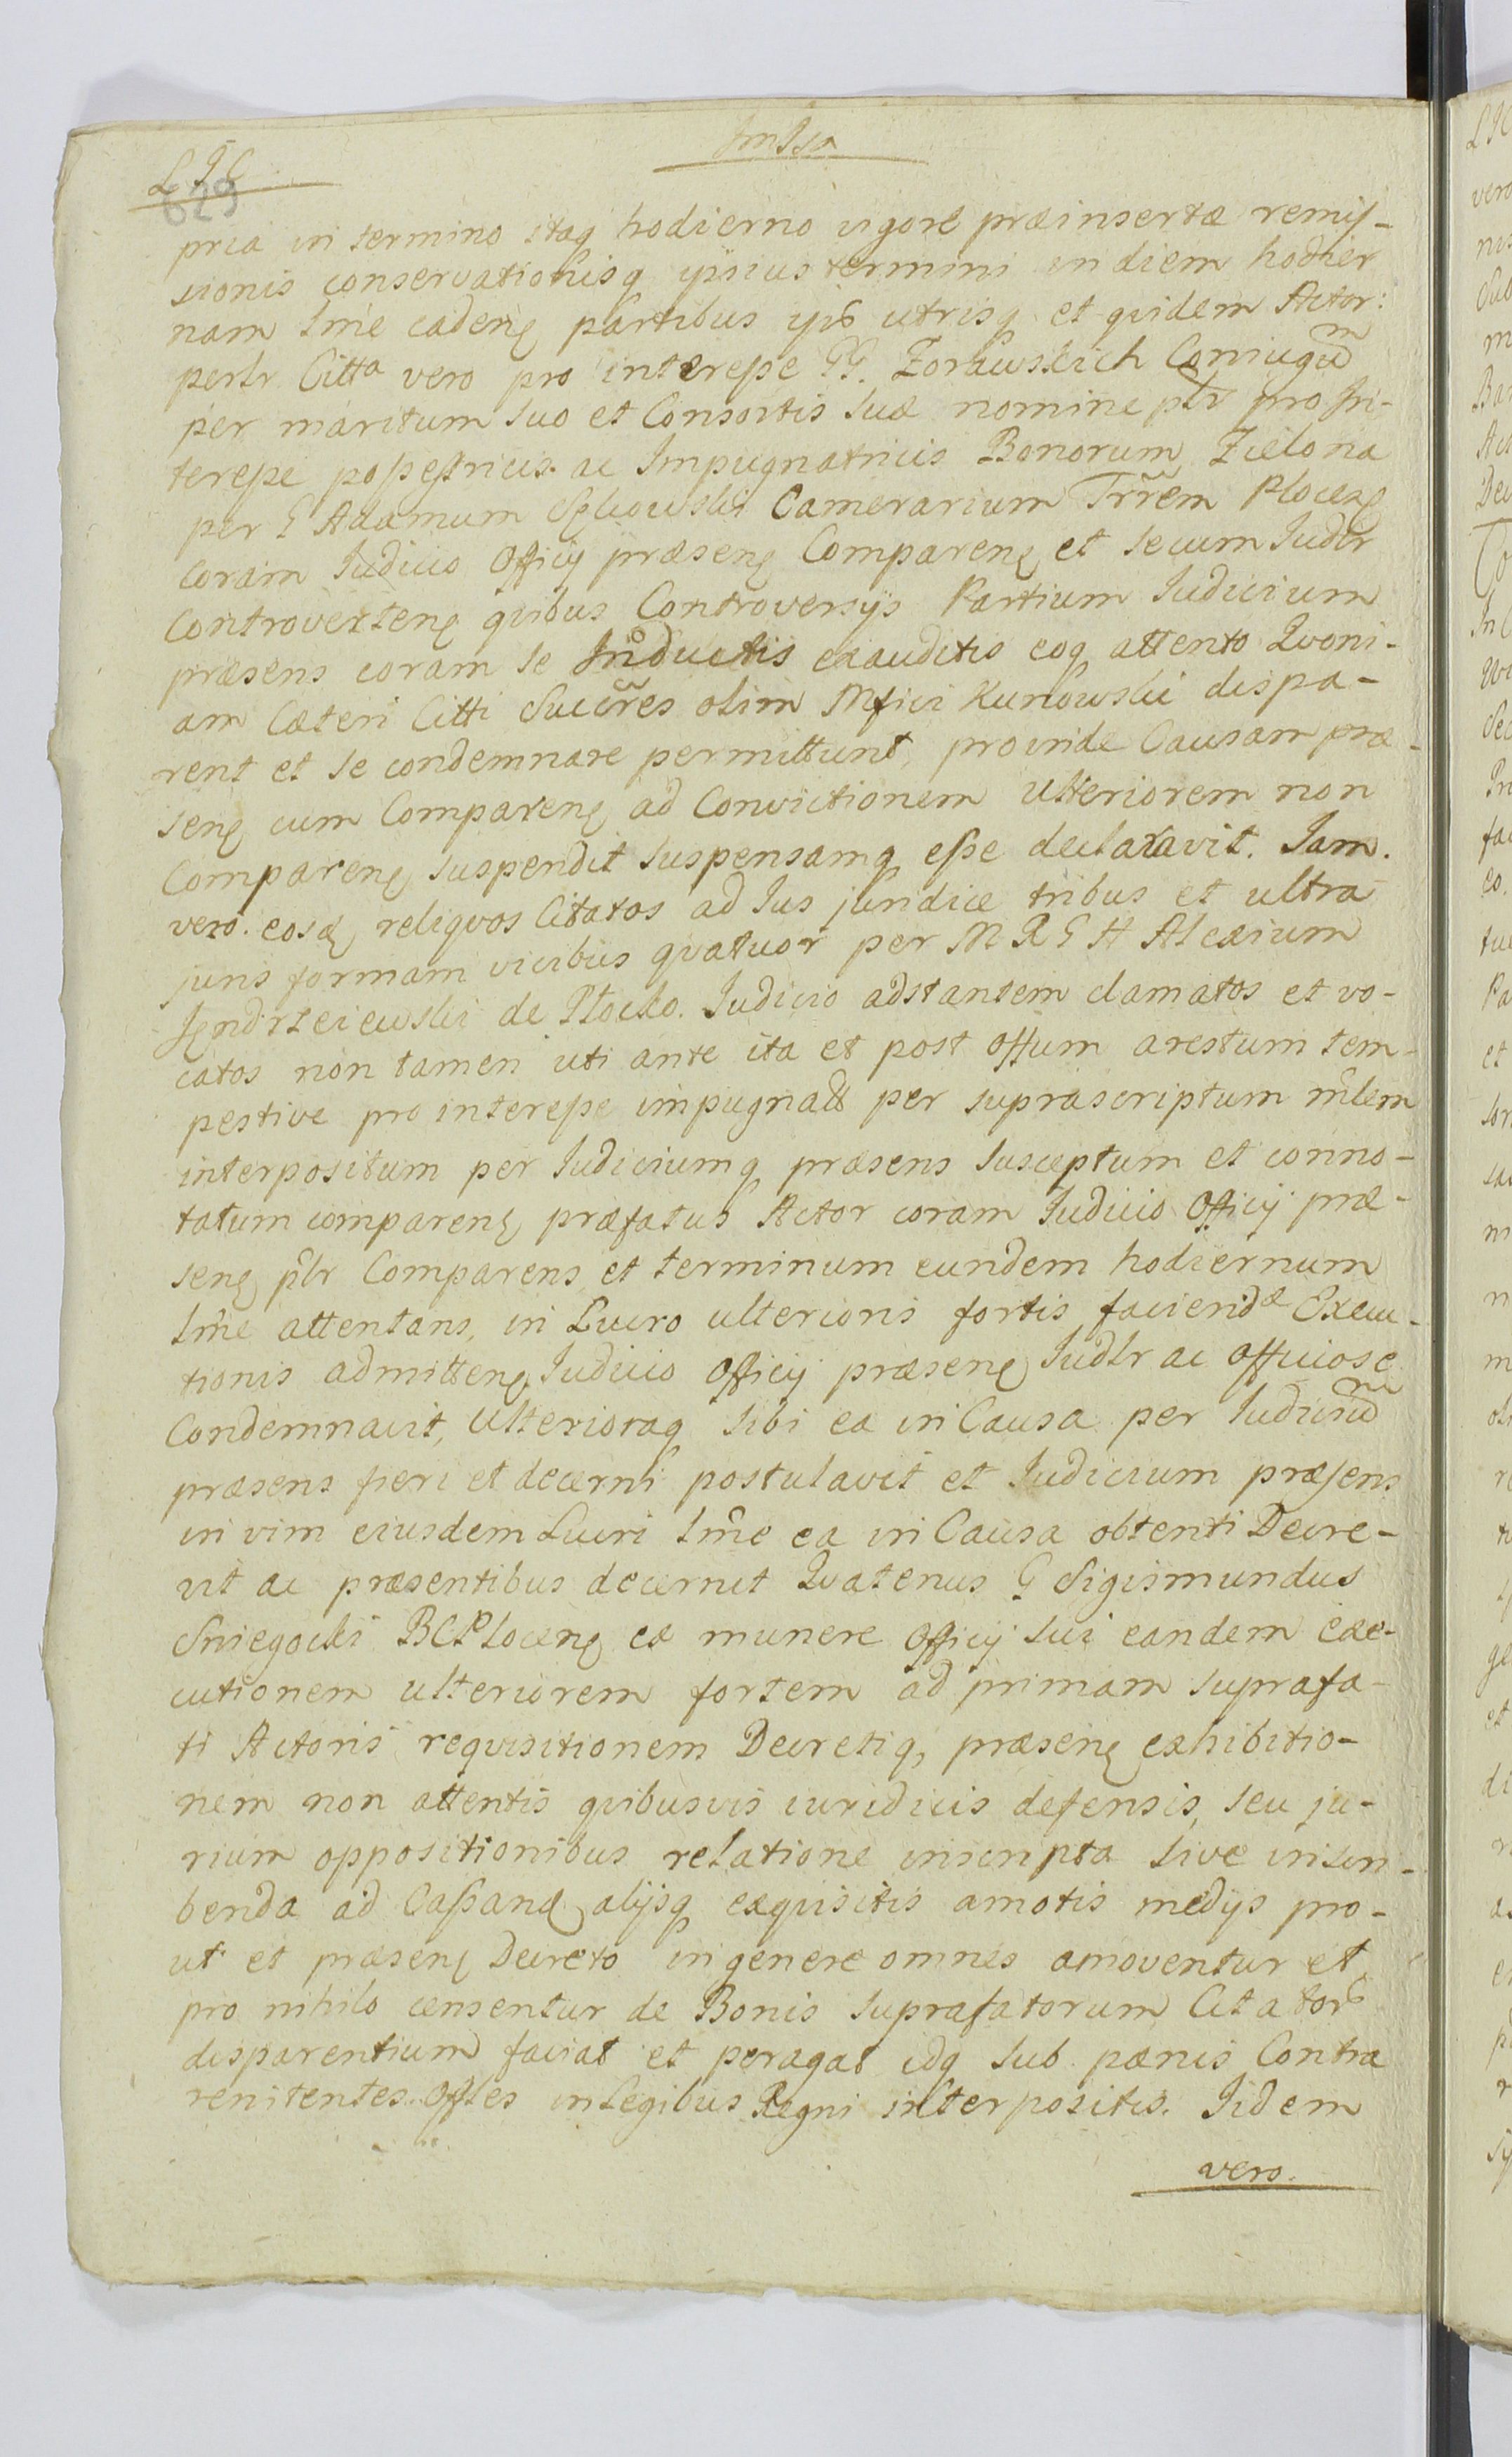 LJC
629
pria in termino itaq hodierno vigore præinsertæ remis-
sionis conservationisq ipsius termini in diem hodier
nam lme cadenę partibus ipis utrisq et quidem Actor:
perlr Citta vero pro interesse GG. Zorawskich Coniugum
per maritum suo et Consortis suæ nomine plr pro In-
teresse possessricis ac Impugnatricis Bonorum Zielona
per G Adamum Camerarium Trrem Plocenę
coram Iudicio Officij præsenę Comparenę et secum Iudlr
Controvertenę quibus Controversijs Partium Iudicium
præsens coram se Inductis exauditis eoq attento Quoni-
am Cæteri Citti Succres olim Mfici Kunowski dispa-
rent et se condemnare permittunt, proinde Causam præ-
senę cum Comparenę ad Convictionem ulteriorem non
Comparenę suspendit suspensamq esse declaravit. Iam.
vero eosdę reliquos Citatos ad Ius juridice tribus et ultra
juris formam vicibus quatuor per M R G H Alexium
Jendrzeiewski de Płocko. Iudicio adstantem clamatos et vo-
catos non tamen uti ante ita et post offum arestum tem-
pestive pro interesse impugnatt per suprascriptum mlem
interpositum per Iudiciumq præsens susceptum et conno-
tatum comparenę præfatus Actor coram Iudicio Officij præ-
senę plr Comparens et terminum eundem hodiernum
lme attentans, in Lucro ulterioris fortis faciendæ Execu-
tionis admittenę Iudicio Officij præsenę Iudlr ac officiose
Condemnavit, Ulterioraq sibi ea in Causa per Iudicium
præsens fieri et decerni postulavit et Iudicium præsens
in vim eiusdem Lucri lme ea in Causa obtenti Decre-
vit ac præsentibus decernit Quatenus G Sigismundus
Sniegocki BCPlocenę ex munere Officij sui eandem exe-
cutionem ulteriorem fortem ad primam suprafa-
ti Actoris requisitionem Decretiq, præsenę exhibitio-
nem non attentis quibusvis iuridicis defensis, seu ju-
rium oppositionibus relatione inscripta sive inscri-
benda ad Cassandę alijsq exquisitis amotis medijs pro-
ut et præsenę Decreto in genere omnes amoventur et
pro nihilo censentur de Bonis suprafatorum Citator
disparentium faciat et peragat idq sub pænis Contra
renitentes Offles in Legibus Regni interpositis. Iidem
vero.